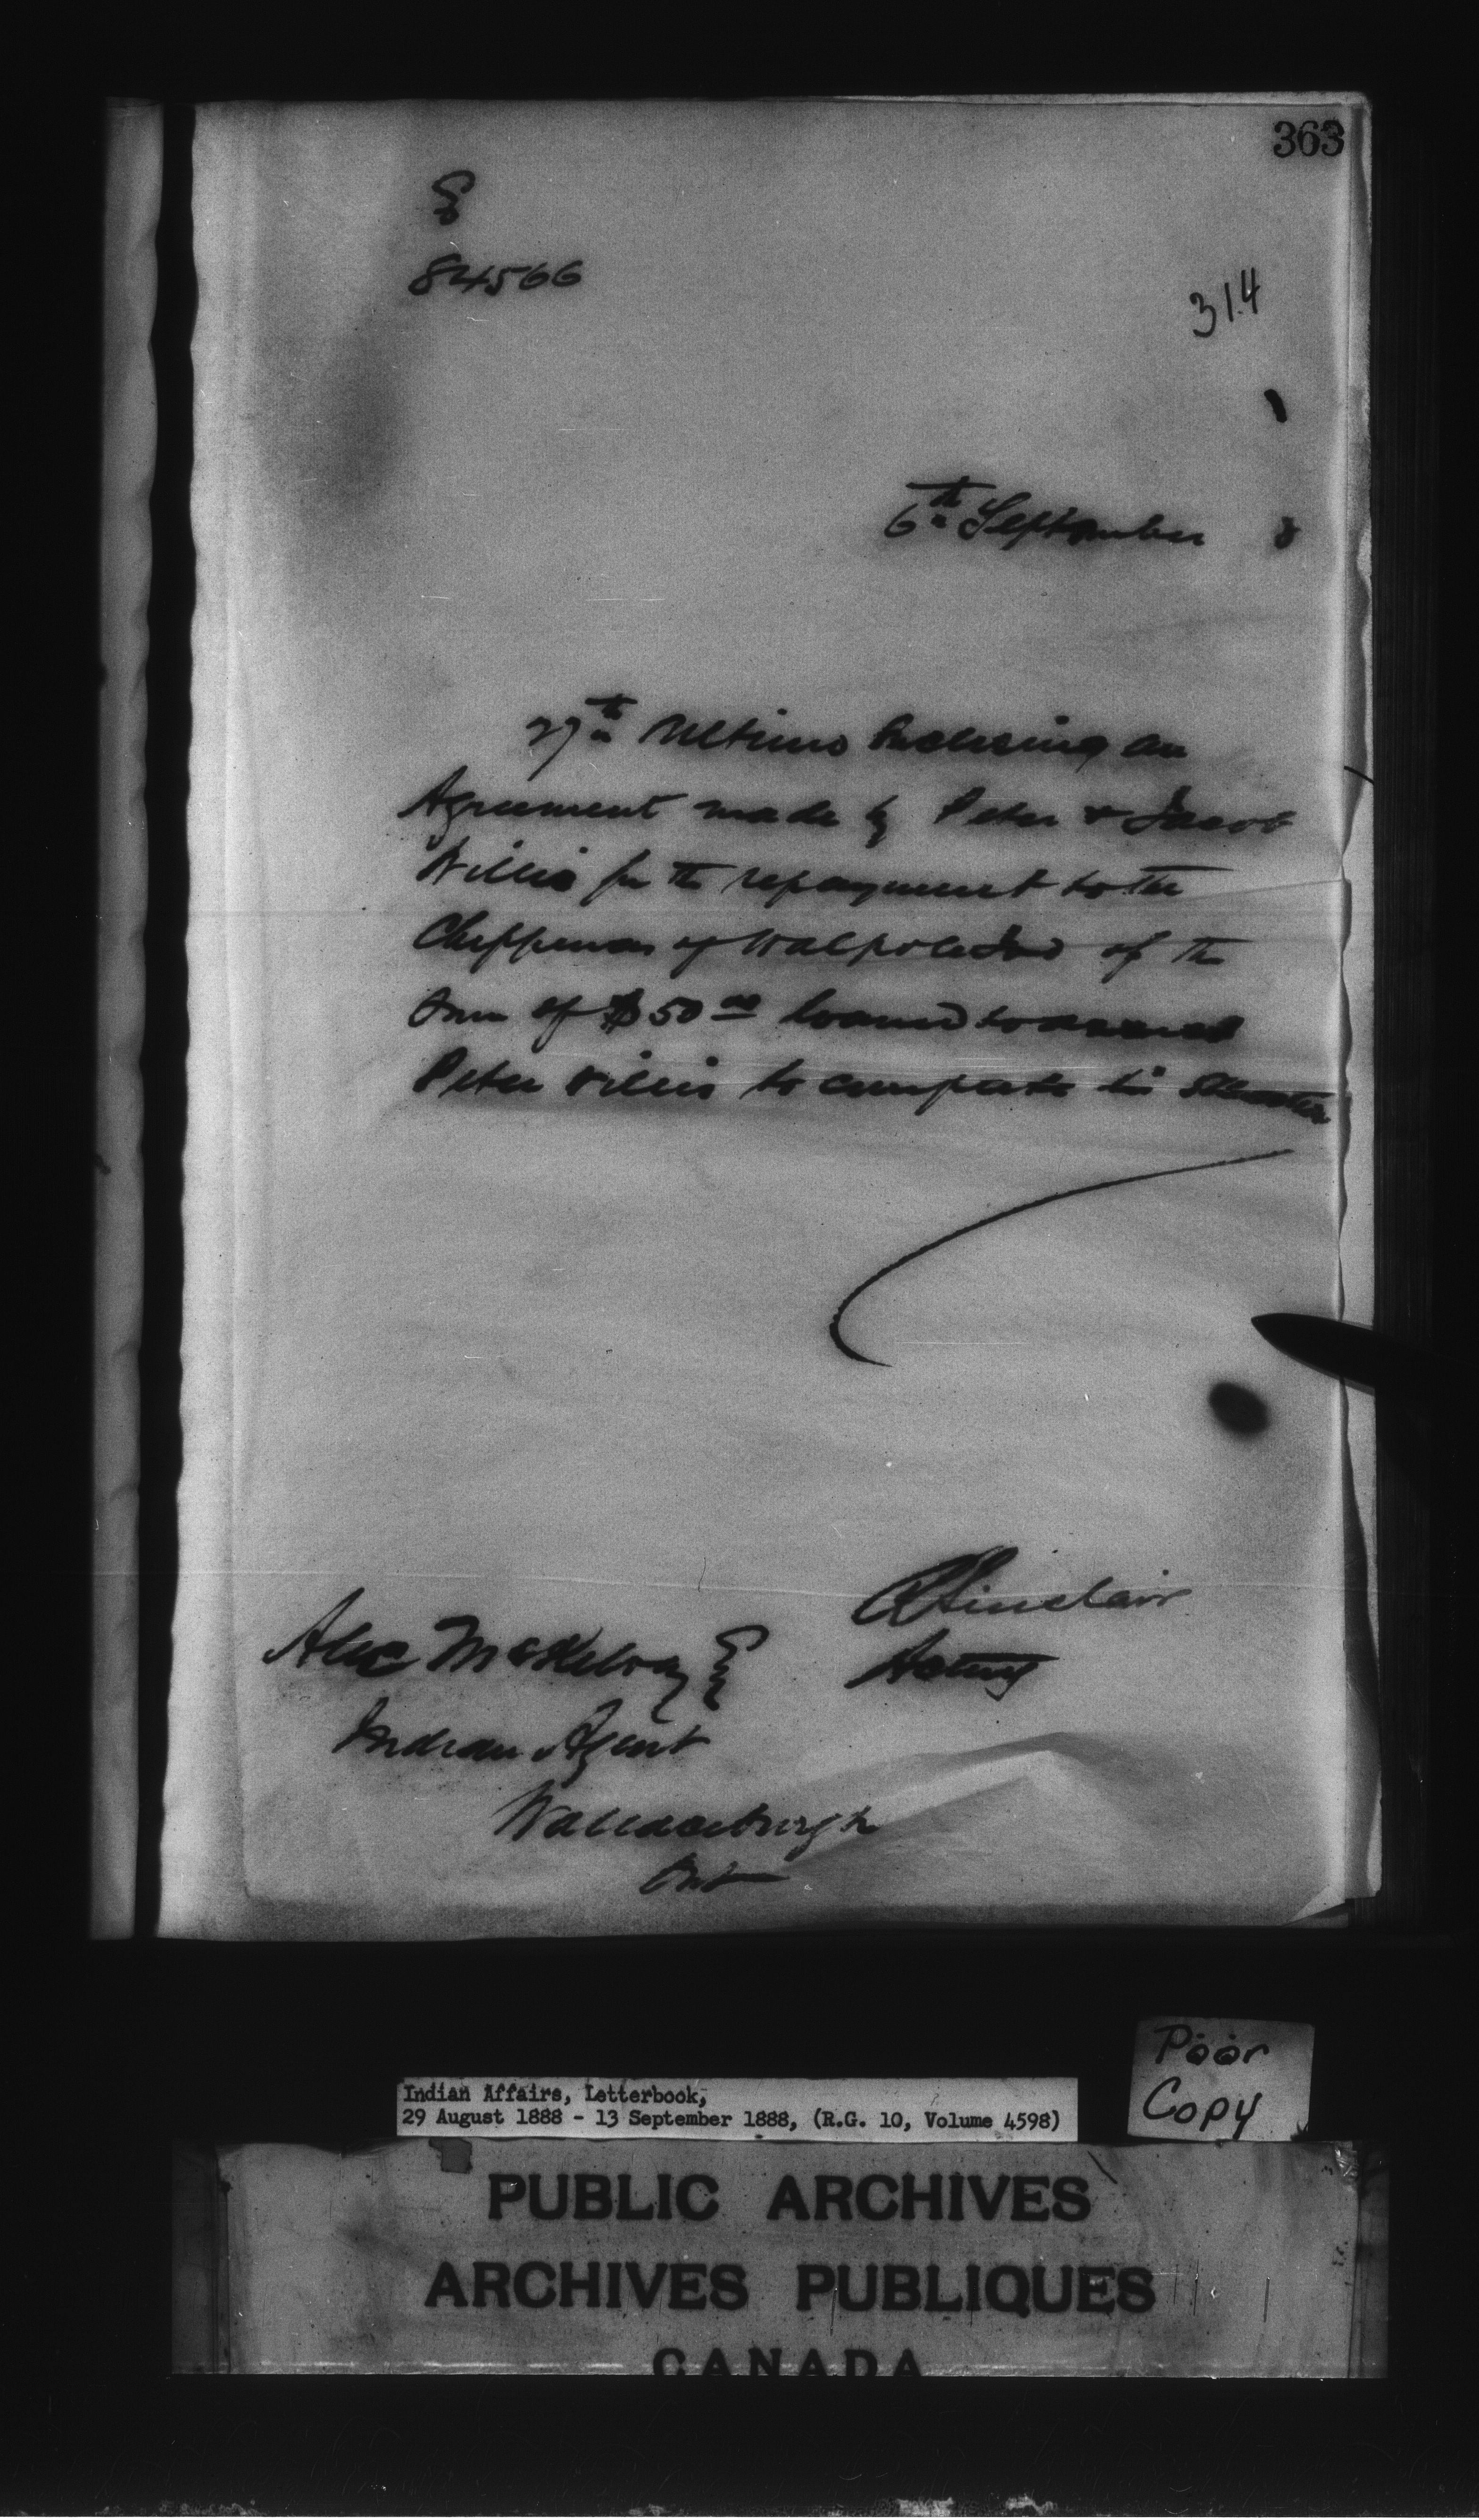 363
84566
314
6th September 8
27th Ultimo Enclosing an
Agreement made by Peter & Jacob
Willis for the repayment to the
Chippewas of Walpole Isd of the
Sum of $50 00 loaned to
Peter Willis to complete his
A Sinclair
Acting
Alex McKelvey
Indian Agent
Wallaceburgh
Ont
Poor
Copy
Indian Affairs, Letterbook,
29 August 1888 - 13 September 1888, (R.G. 10, Volume 4598)
PUBLIC ARCHIVES
ARCHIVES PUBLIQUES
CANADA